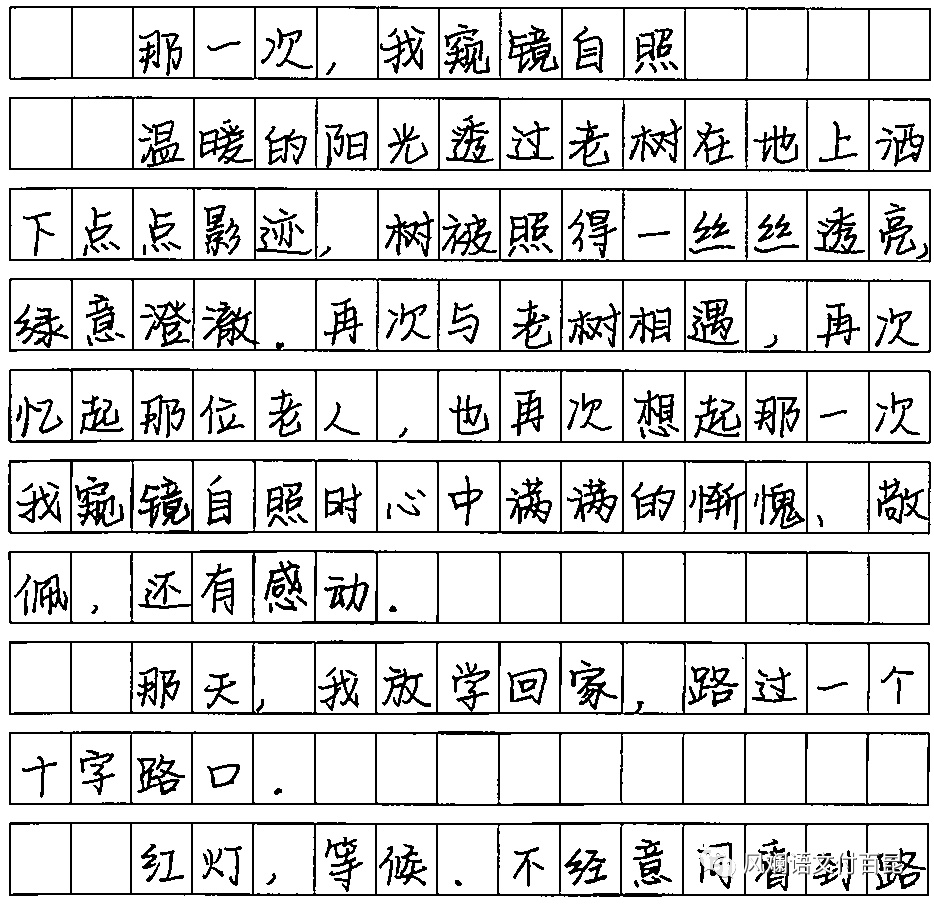 那一次,我窥镜自照
温暖的阳光透过老树在地上洒
下点点影迹,树被照得一丝丝透亮,
绿意澄澈.再次与老树相遇,再次
忆起那位老人,也再次想起那一次
我窥镜自照时心中满满的惭愧、敬
佩,还有感动.
那天,我放学回家,路过一个
十字路口.
红灯,等候.不经意间看到路